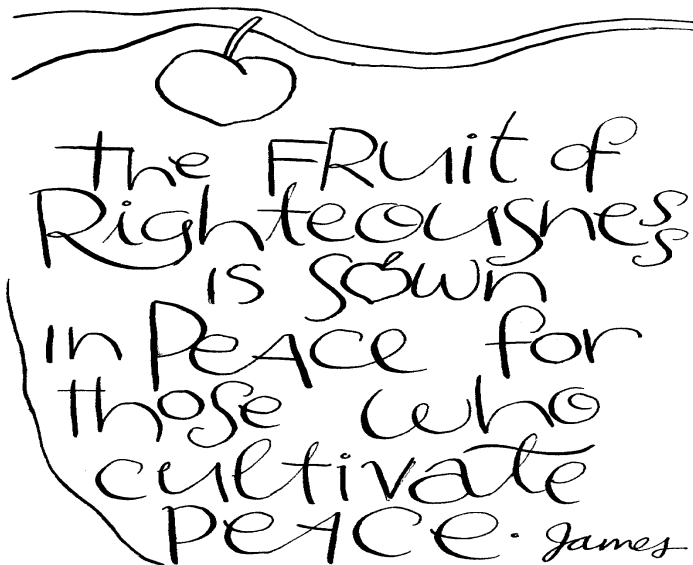 the FRuit of
Righteousness
is sown
in PeAce for
those who
cultivate
PeACe. James